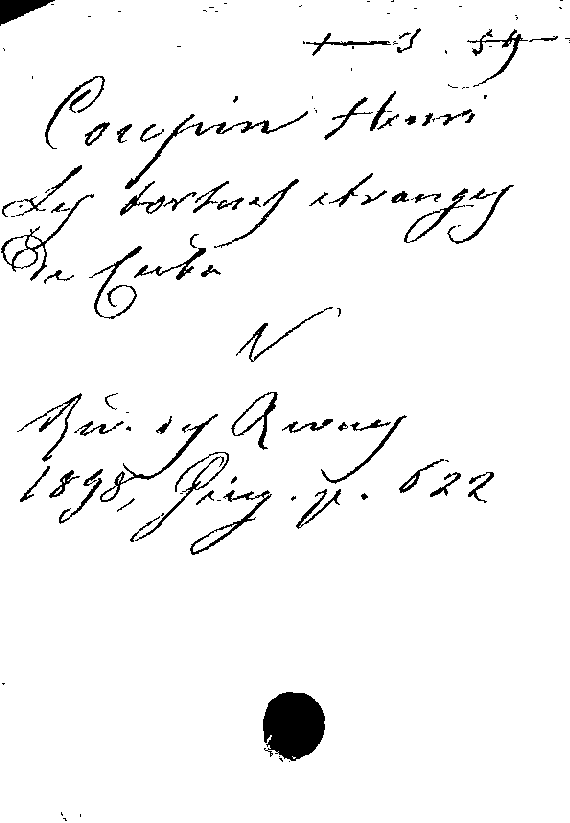 3 54
Coupin Henri
Les tortues etranges
de Cuba
V
Rev. des Revues
1898, p. 622